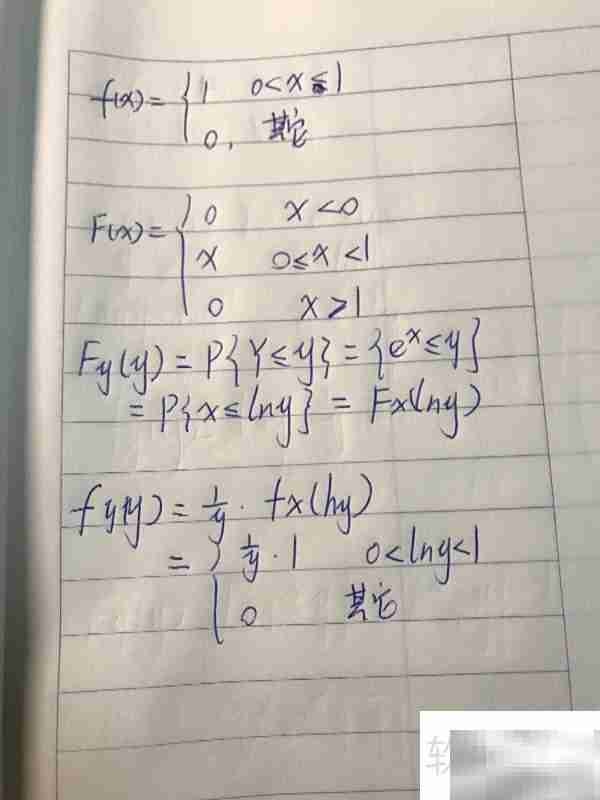 f(x)= { 1 0<x≤1
0, 其它
F(x)= { 0 x<0
x 0≤x<1
0 x>1
Fy(y) = P{Y≤y} = {e^x≤y}
= P{x≤lny} = Fx(lny)
fy(y) = 1/y · fx(lny)
= { 1/y · 1 0<lny<1
0 其它